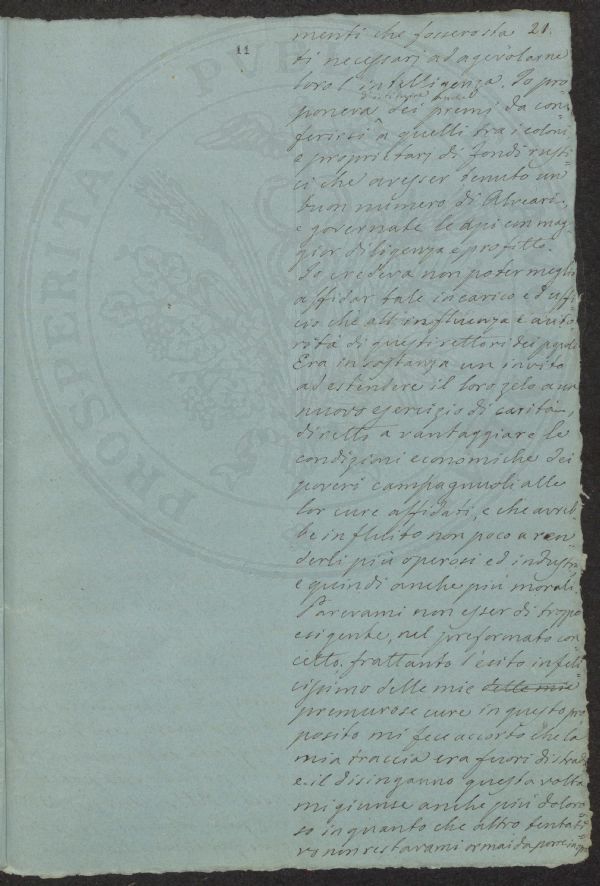 21.
11
menti che fossero sta
ti necessari ad agevolarne
loro l'intelligenza. Io pro
poneva dei premi da con
ferirsi a quelli tra i coloni
e proprietarj di fondi rusti
ci che avesser tenuto un
buon numero di Alveari,
e governate le Api con mag
gior diligenza e profitto.
Io credeva non poter meglio
affidar tale incarico ed uffi
cio che all'influenza e auto
rità di questi rettori dei popoli
Era in sostanza un invito
ad estendere il loro zelo a un
nuovo esercizio di carità,
diretto a vantaggiare le
condizioni economiche dei
poveri campagnuoli alle
lor cure affidati, e che avreb
be influito non poco a ren
derli più operosi ed industri
e quindi anche più morali.
Parevami non esser di troppo
esigente, nel preformato con
cetto, frattanto l'esito infeli
cissimo delle mie delle mie
premurose cure in questo pro
posito mi fece accorto che la
mia traccia era fuori di strada
e il disinganno questa volta
mi giunse anche più doloro
so in quanto che altro tentati
vo non restavami ormai da porre in
PROSPERITATI PUBL